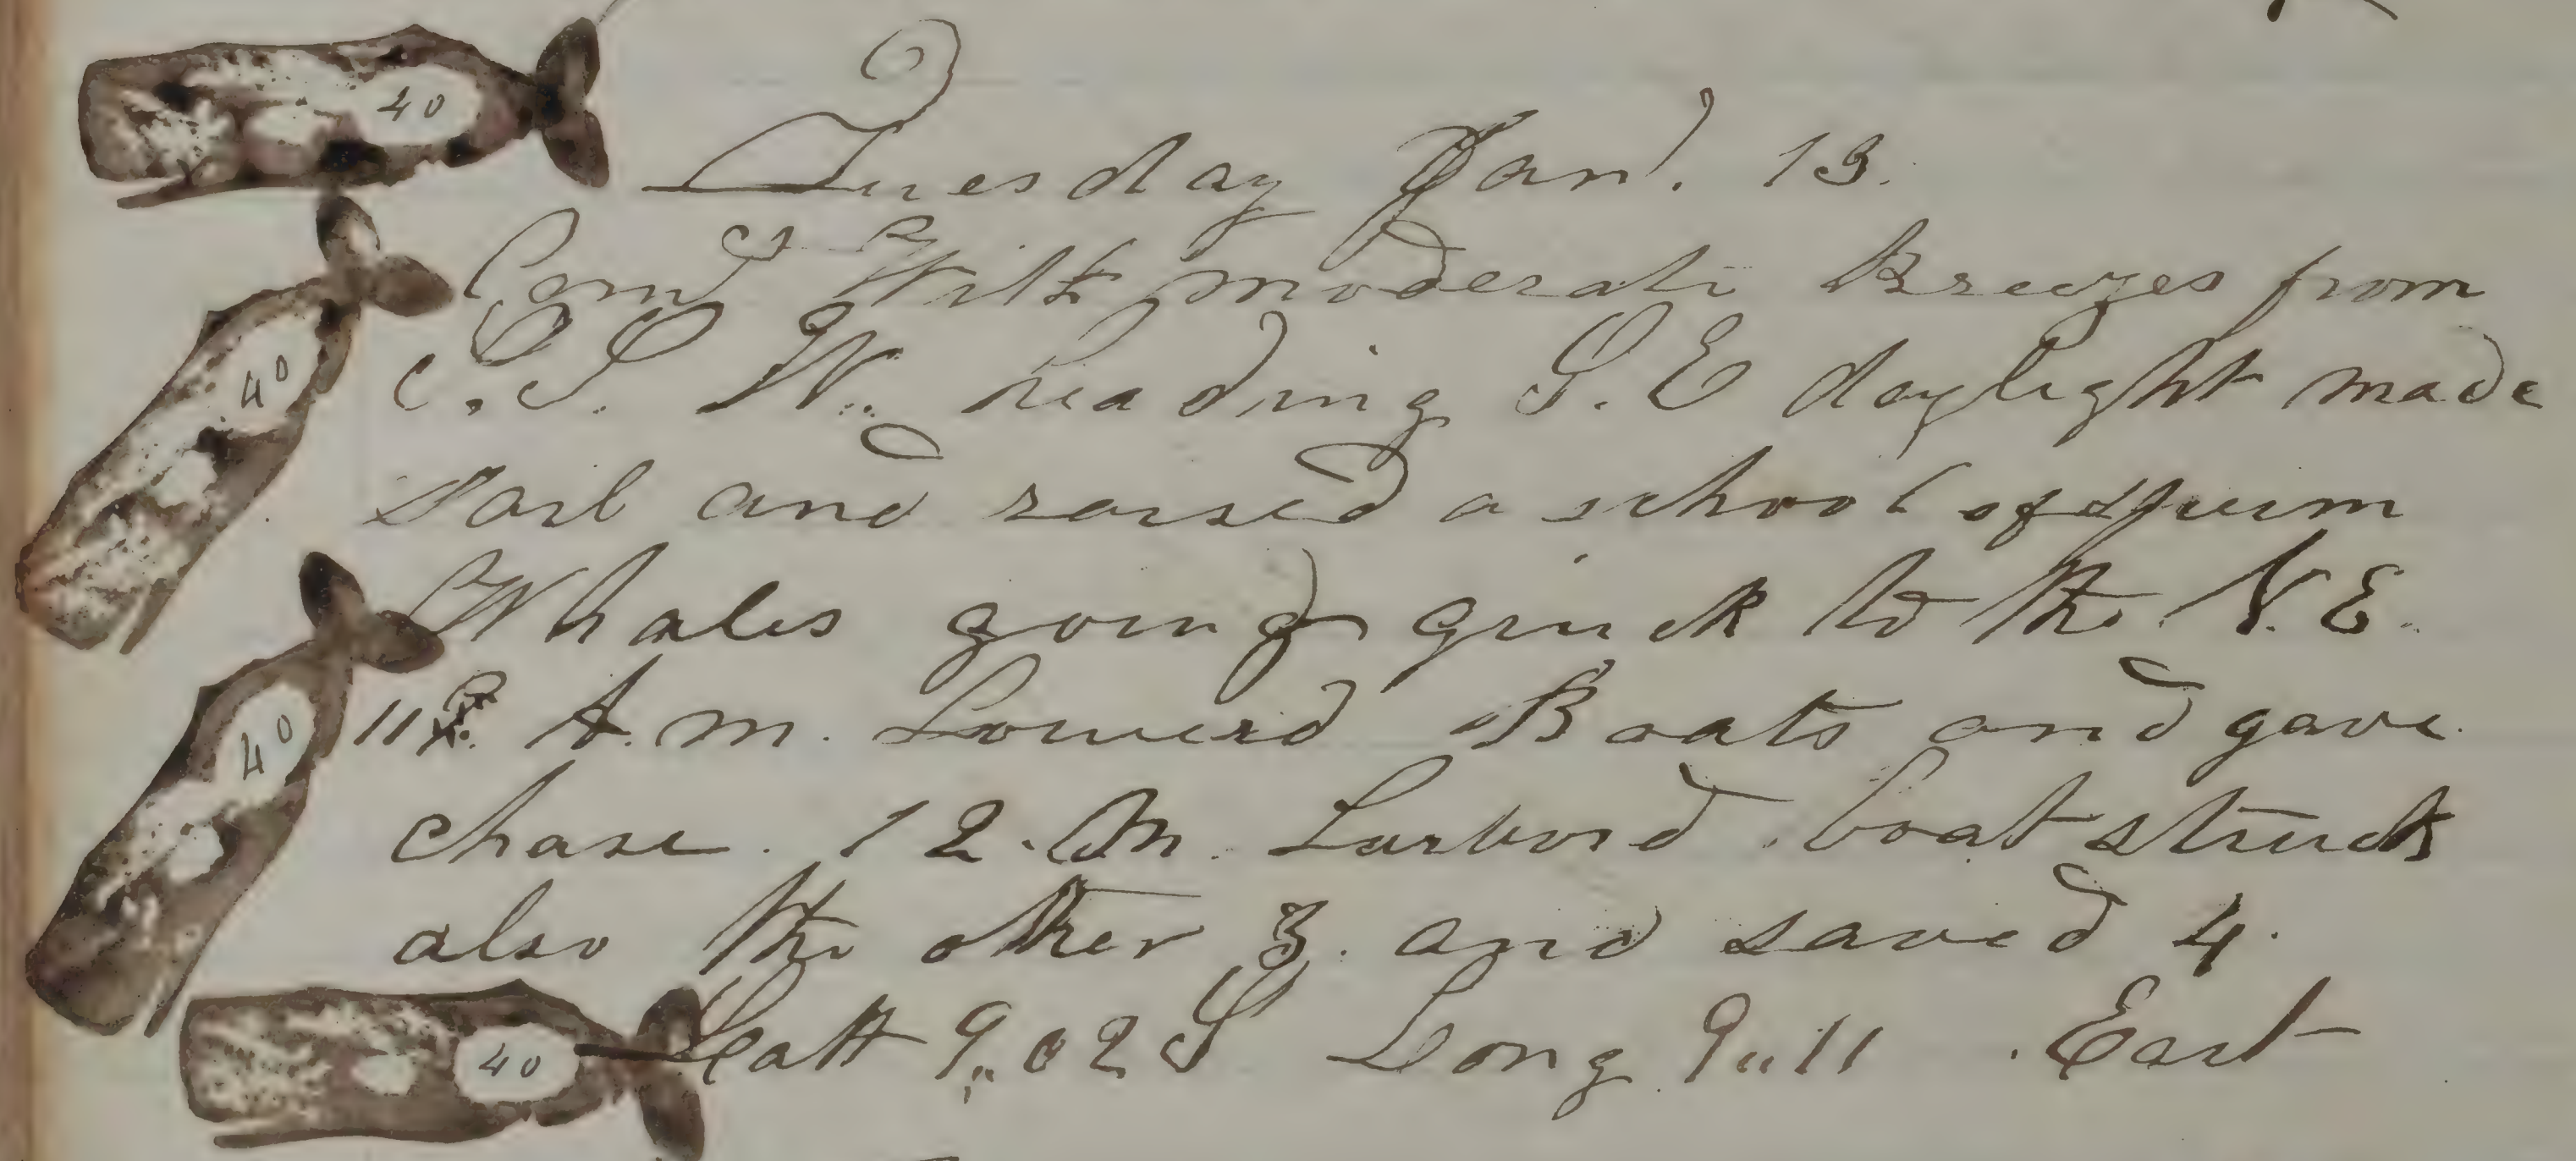 40
Tuesday Jan. 13.
Comd With moderate Breezes from
40
S. W. heading S. E daylight made
sail and raised a school of Spurm
Whales going quick to the N. E.
40
11 A. m. Lowerd Boats and gave
chase. 12. M. Larbord boat struck
also the other 3. and saved 4.
40
Latt 9,,02 S Long 9,,11 East